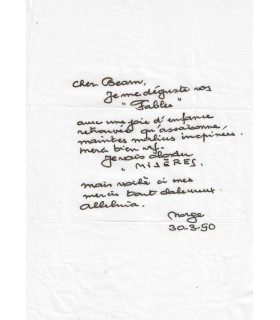 cher Bearn,
Je me déguste vos
" Fables "
avec une joie d'enfance
retrouvée qu'assaisonne,
maintes malices
merci bien
Je vais
" MISÈRES,
mais voilà ci mes
mercis tout chaleureux
Alleluia.
Norge
30-3-90